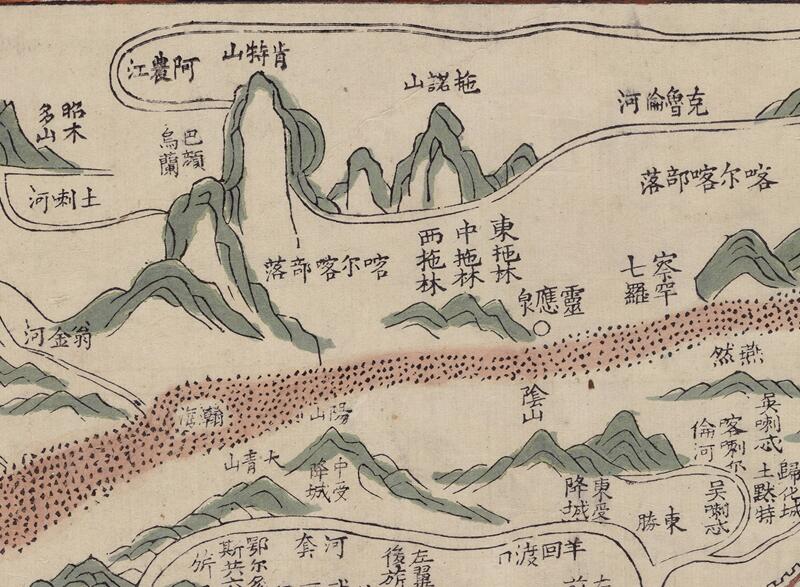 阿農江
肯特山
拖諾山
克魯倫河
昭木多山
巴顏烏蘭
土喇河
喀尔喀部落
喀尔喀部落
東拖林
中拖林
西拖林
靈應泉
察罕七羅
翁金河
瀚海
陽山
陰山
燕然
大青山
中受降城
東受降城
喀喇尔倫河
吳喇忒
歸化城土默特
吳喇忒
東勝
河套
羊回渡口
左翼後旂